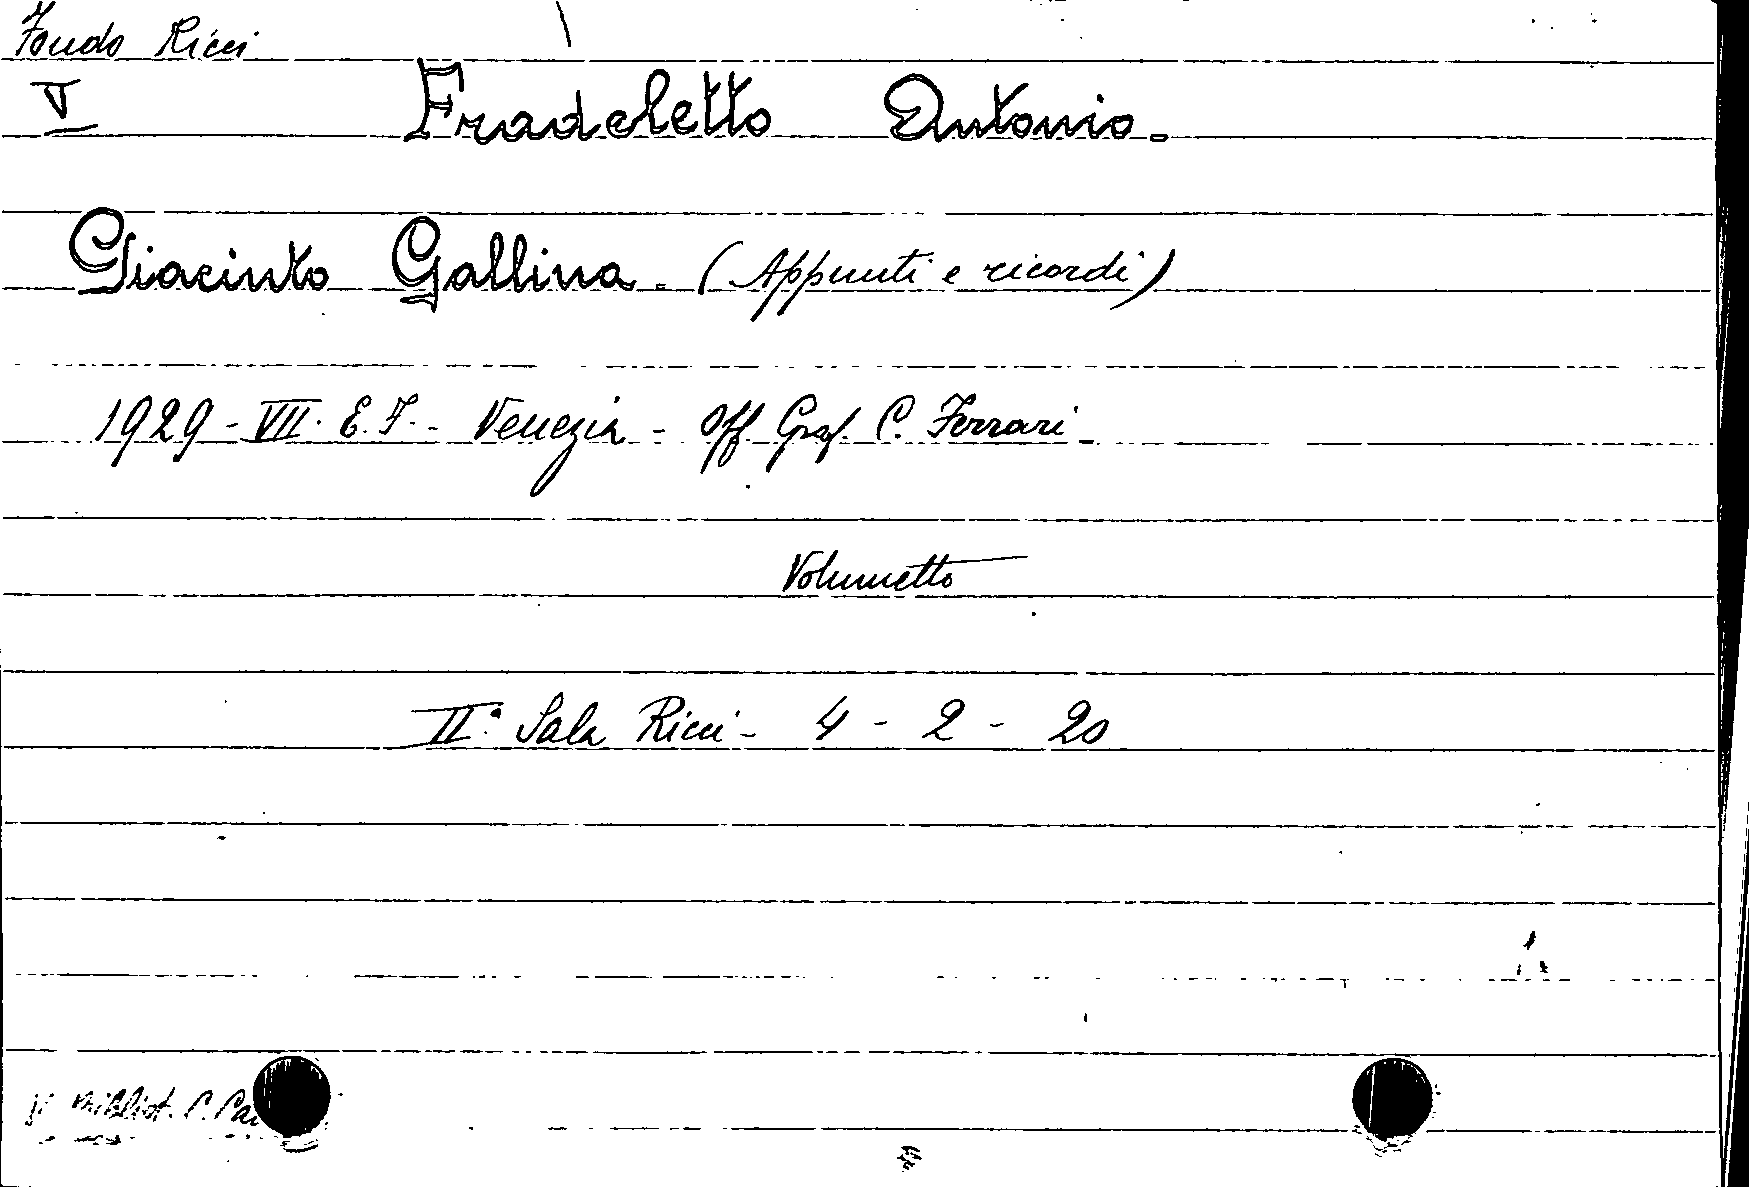 Fondo Ricci
V Fradeletto Antonio.
Giacinto Gallina. (Appunti e ricordi)
1929 - VII. E. F. - Venezia - Off. Graf. C. Ferrari -
Volumetto
IIª Sala Ricci - 4 - 2 - 20
Bibliot. C.